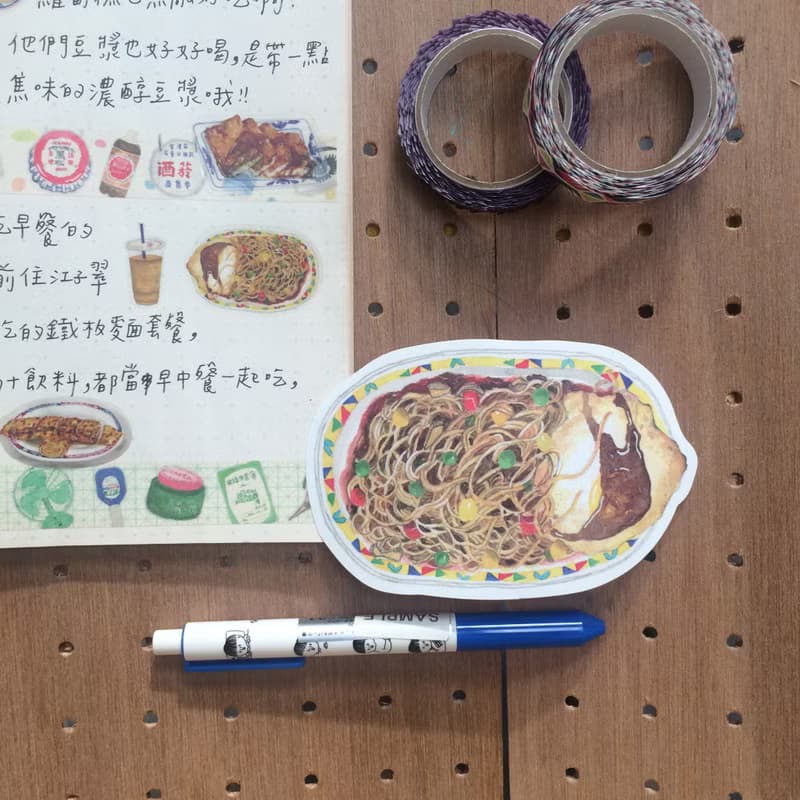 他們豆漿也好好喝,是帶一點
焦味的濃醇豆漿哦!!
黑松
酒菸
吃早餐的
前往江子翠
吃的鐵板麵套餐,
飲料,都當早中餐一起吃,
SAMPLE